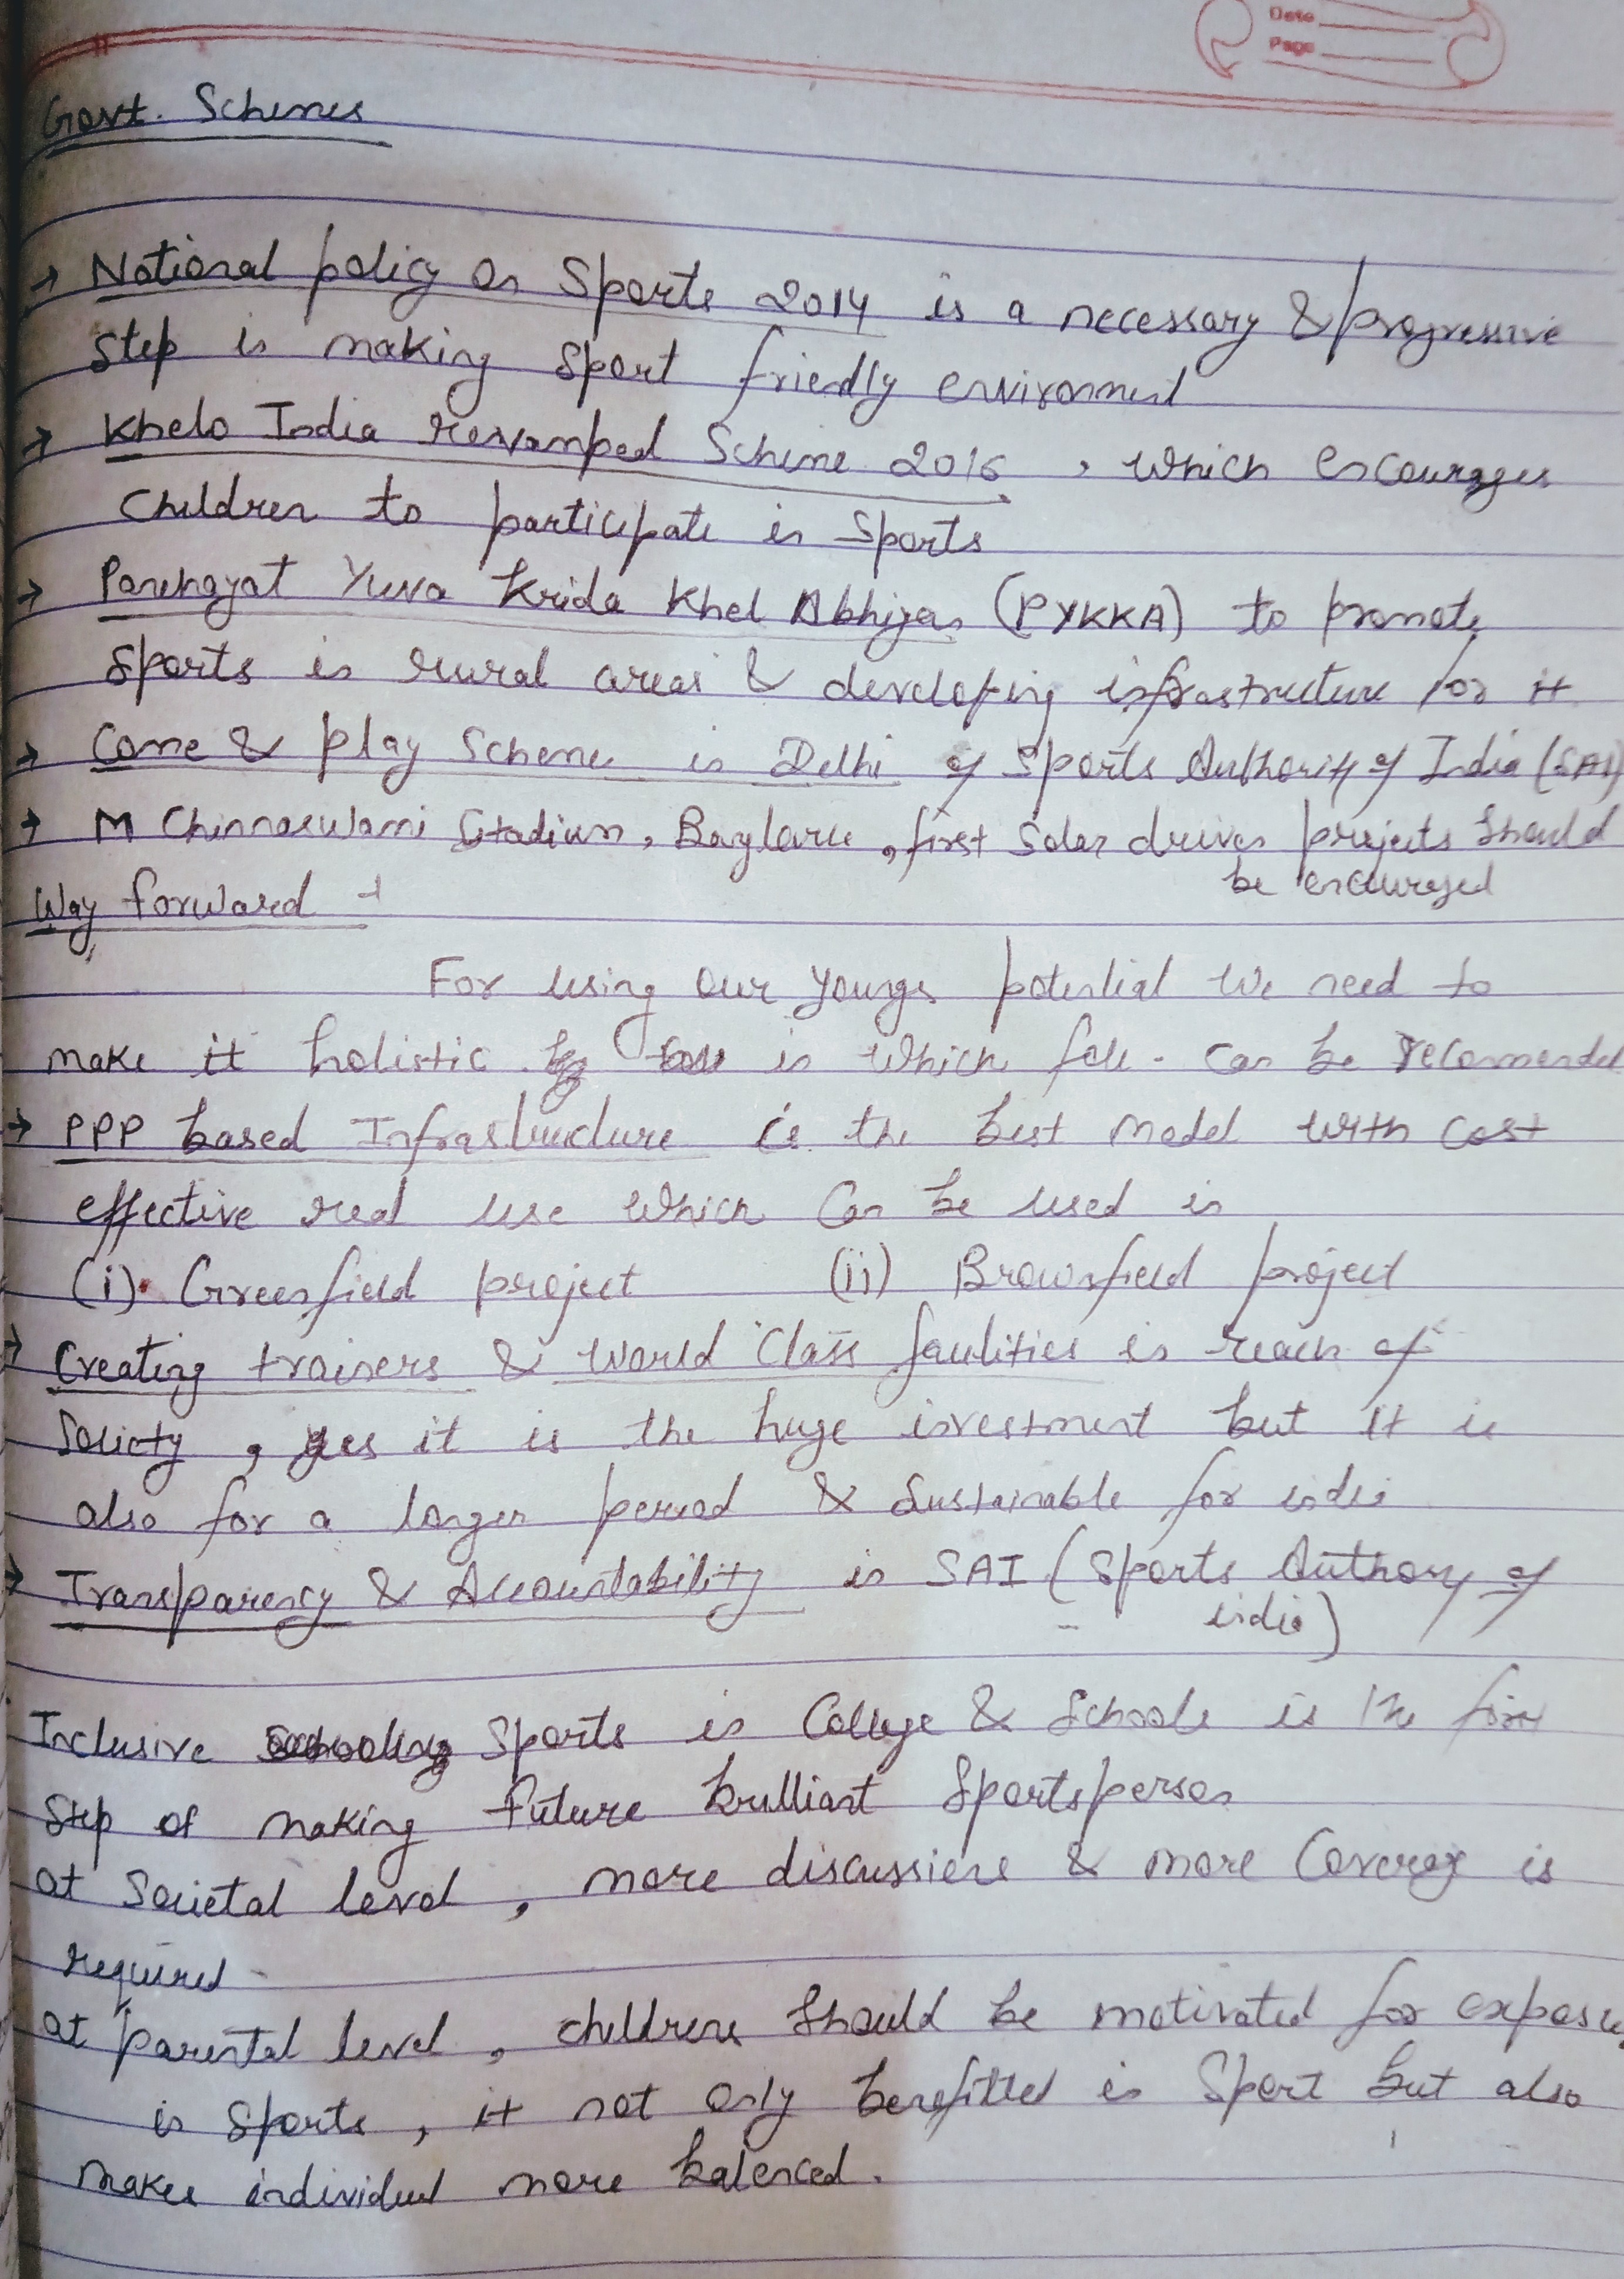 Date
Page
Govt. Schemes
→ National policy on Sports 2014 is a necessary & progressive
step in making sport friendly environment
→ Khelo India revamped Scheme 2016, which encourages
Children to participate in Sports
→ Panchayat Yuva Krida Khel Abhiyan (PYKKA) to promote
sports in rural areas & developing infrastructure for it
→ Come & play Scheme in Delhi of Sports Authority of India (SAI)
→ M Chinnaswami Stadium, first Solar driven projects should
be encouraged
Way forward
For using our potential we need to
make it holistic in which can be recomended
→ PPP based Infrastructure is the best model with cost
effective real use which can be used in
(i) Greenfield project (ii) Brownfield project
→ Creating trainers & World Class facilities in reach of
Society, yes it is the huge investment but it is
also for a longer period & sustainable for india
→ Transparency & Accountability in SAI (Sports Authory of
india)
Inclusive Sports in College & Schools is the first
step of making future brilliant Sportsperson
at Societal level, more discussions & more Coverage is
required
at parental level, children should be motivated for
in sports, it not only benefitted in Sport but also
makes individual more balenced.